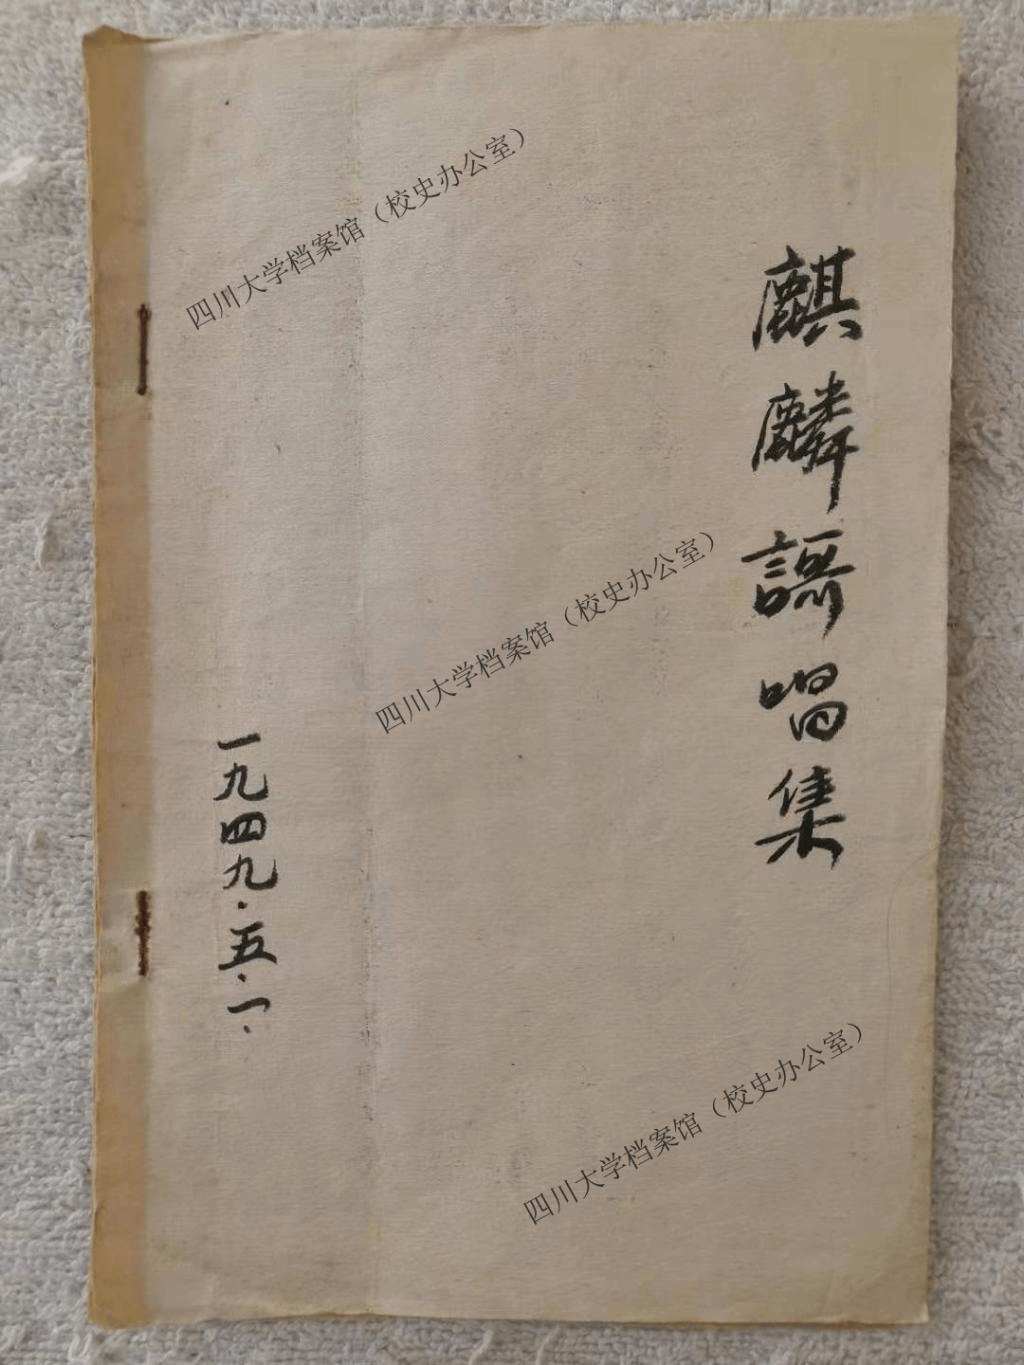 麒麟謌唱集
一九四九·五·一·
四川大学档案馆（校史办公室）
四川大学档案馆（校史办公室）
四川大学档案馆（校史办公室）